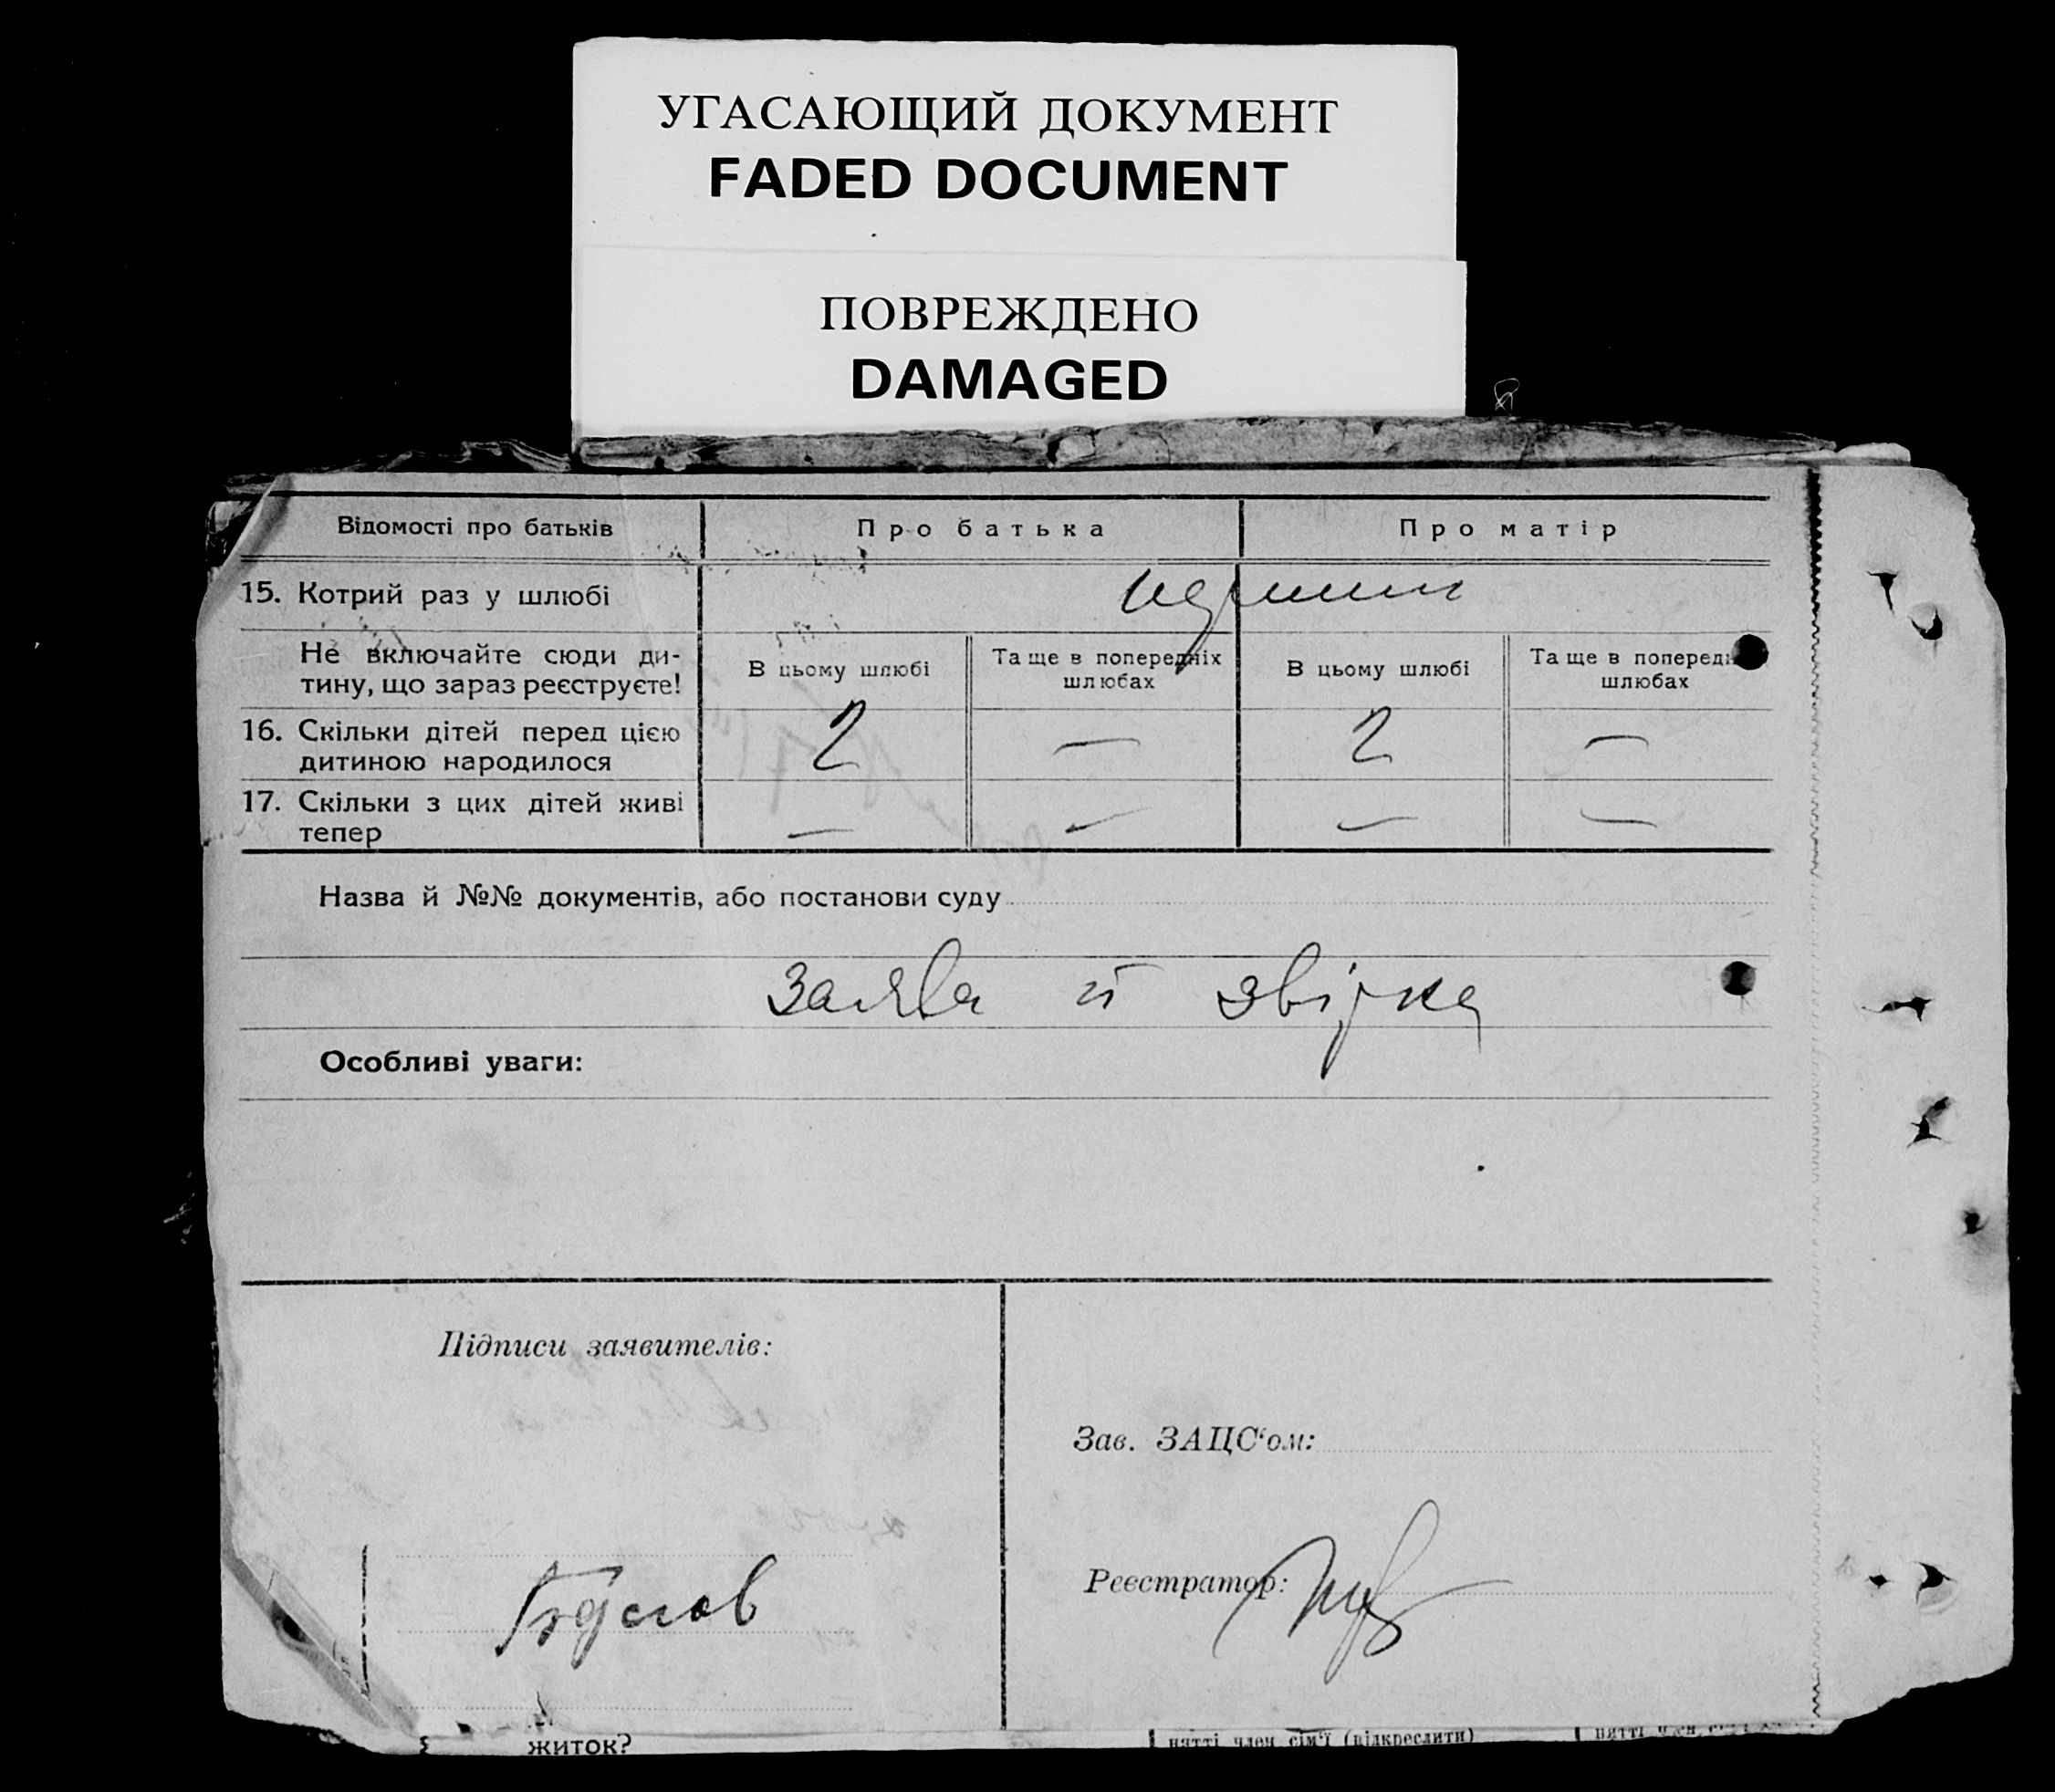 УГАСАЮЩИЙ ДОКУМЕНТ
FADED DOCUMENT
ПОВРЕЖДЕНО
DAMAGED
Відомості про батьків Про батька Про матір
15. Котрий раз у шлюбі
Не включайте сюди ди-
тину, що зараз реєструєте!
В цьому шлюбі
Та ще в попередніх
шлюбах
В цьому шлюбі
Та ще в поперед
шлюбах
16. Скільки дітей перед цією
дитиною народилося
2 — 2 —
17. Скільки з цих дітей живі
тепер
— — — —
Назва й №№ документів, або постанови суду
Заява й звірка
Особливі уваги:
Підписи заявителів:
Зав. ЗАЦС‘ом:
Реєстратор:
житок?
нятті член сім'ї (підкреслити)